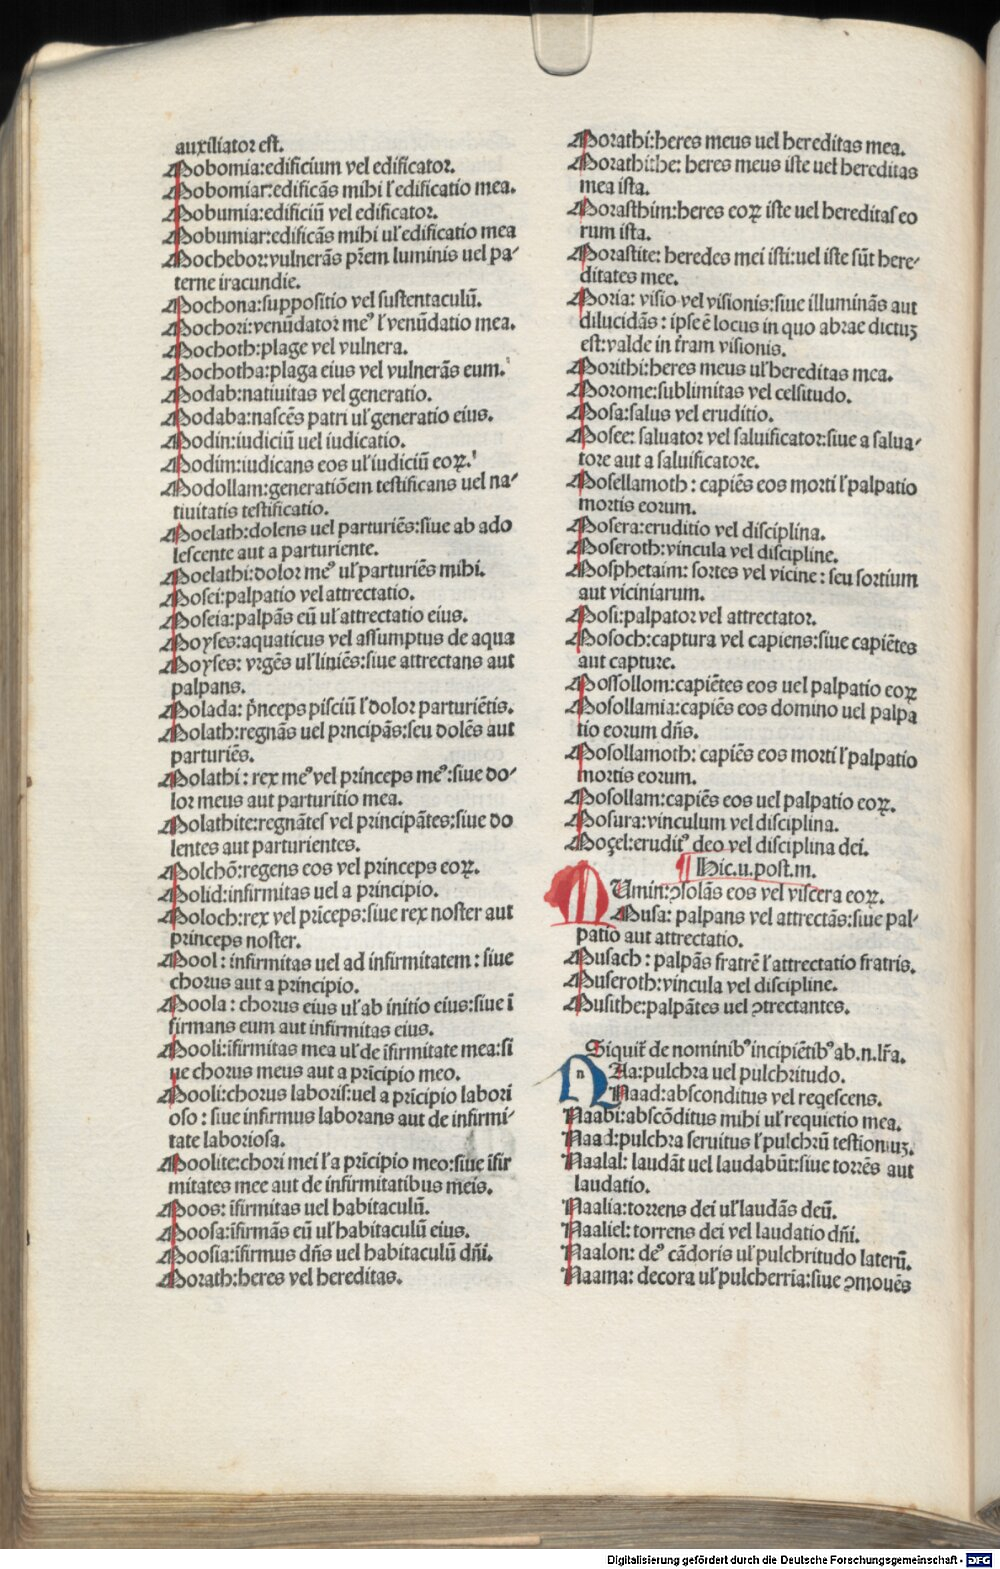 auxiliator est.
Mobomia:edificium vel edificator.
Mobomiar:edificãs mihi ł edificatio mea.
Mobumia:edificiũ vel edificator.
Mobumiar:edificãs mihi uł edificatio mea
Mochebor:vulnerãs pr̃em luminis uel pa-
terne iracundie.
Mochona:suppositio vel sustentaculũ.
Mochori:venũdator meꝰ ł venũdatio mea.
Mochoth:plage vel vulnera.
Mochotha:plaga eius vel vulnerãs eum.
Modab:natiuitas vel generatio.
Modaba:nascẽs patri uł generatio eius.
Modin:iudiciũ uel iudicatio.
Modim:iudicans eos uł iudiciũ eoꝝ.
Modollam:generatiõem testificans uel na-
tiuitatis testificatio.
Moelath:dolens uel parturiẽs:siue ab ado
lescente aut a parturiente.
Moelathi:dolor meꝰ uł parturiẽs mihi.
Mosei:palpatio vel attrectatio.
Moseia:palpãs eũ uł attrectatio eius.
Moyses:aquaticus vel assumptus de aqua
Moyses: vrgẽs uł liniẽs:siue attrectans aut
palpans.
Molada: p̃nceps pisciũ ł dolor parturiẽtis.
Molath:regnãs uel prncipãs:seu dolẽs aut
parturiẽs.
Molathi: rex meꝰ vel princeps meꝰ:siue do-
lor meus aut parturitio mea.
Molathite:regnãtes vel principãtes:siue do
lentes aut parturientes.
Molchõ:regens eos vel princeps eoꝝ.
Molid:infirmitas uel a principio.
Moloch:rex vel pri̇ceps:siue rex noster aut
princeps noster.
Mool: infirmitas uel ad infirmitatem: siue
chorus aut a principio.
Moola: chorus eius uł ab initio eius:siue ĩ
firmans eum aut infirmitas eius.
Mooli:ĩfirmitas mea uł de ĩfirmitate mea:si
ue chorus meus aut a prĩcipio meo.
Mooli:chorus laboris:uel a prĩcipio labori
oso: siue infirmus laborans aut de infirmi-
tate laboriosa.
Moolite:chori mei ł a prĩcipio meo:siue ĩfir
mitates mee aut de infirmitatibus meis.
Moos: ĩfirmitas uel habitaculũ.
Moosa:ĩfirmãs eũ uł habitaculũ eius.
Moosia:ĩfirmus dñs uel habitaculũ dñi.
Morath:heres vel hereditas.
Morathi:heres meus uel hereditas mea.
Morathithe: heres meus iste uel hereditas
mea ista.
Morasthim:heres eoꝝ iste uel hereditas eo
rum ista.
Morastite: heredes mei isti:uel iste sũt here-
ditates mee.
Moria: visio vel visionis:siue illuminãs aut
dilucidãs: ipse ẽ locus in quo abrae dictuꝫ
est:valde in t̃ram visionis.
Morithi:heres meus uł hereditas mea.
Morome:sublimitas vel celsitudo.
Mosa:salus vel eruditio.
Mosee: saluator vel saluificator:siue a salua-
tore aut a saluificatore.
Mosellamoth: capiẽs eos morti ł palpatio
mortis eorum.
Mosera:eruditio vel disciplina.
Moseroth:vincula vel discipline.
Mosphetaim: sortes vel vicine: seu sortium
aut viciniarum.
Mosi:palpator vel attrectator.
Mosoch:captura vel capiens:siue capiẽtes
aut capture.
Mossollom:capiẽtes eos uel palpatio eoꝝ
Mosollamia:capiẽs eos domino uel palpa
tio eorum dñs.
Mosollamoth: capiẽs eos morti ł palpatio
mortis eorum.
Mosollam:capiẽs eos uel palpatio eoꝝ.
Mosura:vinculum vel disciplina.
Moçel:eruditꝰ deo vel disciplina dei.
¶ Hic.u.post.m.
MUmin:ↄsolãs eos vel viscera eoꝝ.
Musa: palpans vel attrectãs:siue pal-
patio aut attrectatio.
Musach: palpãs fratrẽ ł attrectatio fratris.
Museroth:vincula vel discipline.
Musithe:palpãtes uel ↄtrectantes.
Siquit̃ de nominibꝰ incipiẽtibꝰ ab.n.lr̃a.
NAa:pulchra uel pulchritudo.
Naad:absconditus vel reqescens.
Naabi:abscõditus mihi uł requietio mea.
Naad:pulchra seruitus ł pulchrũ testioniuꝫ.
Naalal: laudãt uel laudabũt:siue torrẽs aut
laudatio.
Naalia:torrens dei uł laudãs deũ.
Naaliel:torrens dei vel laudatio dñi.
Naalon: deꝰ cãdoris uł pulchritudo laterũ.
Naama: decora uł pulcherria:siue ↄmouẽs
Digitalisierung gefördert durch die Deutsche Forschungsgemeinschaft - DFG